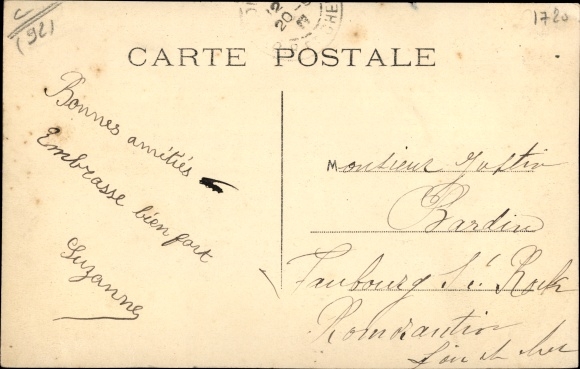 (92)
1720
CARTE POSTALE
Bonnes amitiés
Embrasse bien fort
Suzanne
Monsieur Justin
Bardin
Faubourg St Roch
Romorantin
Loir et cher